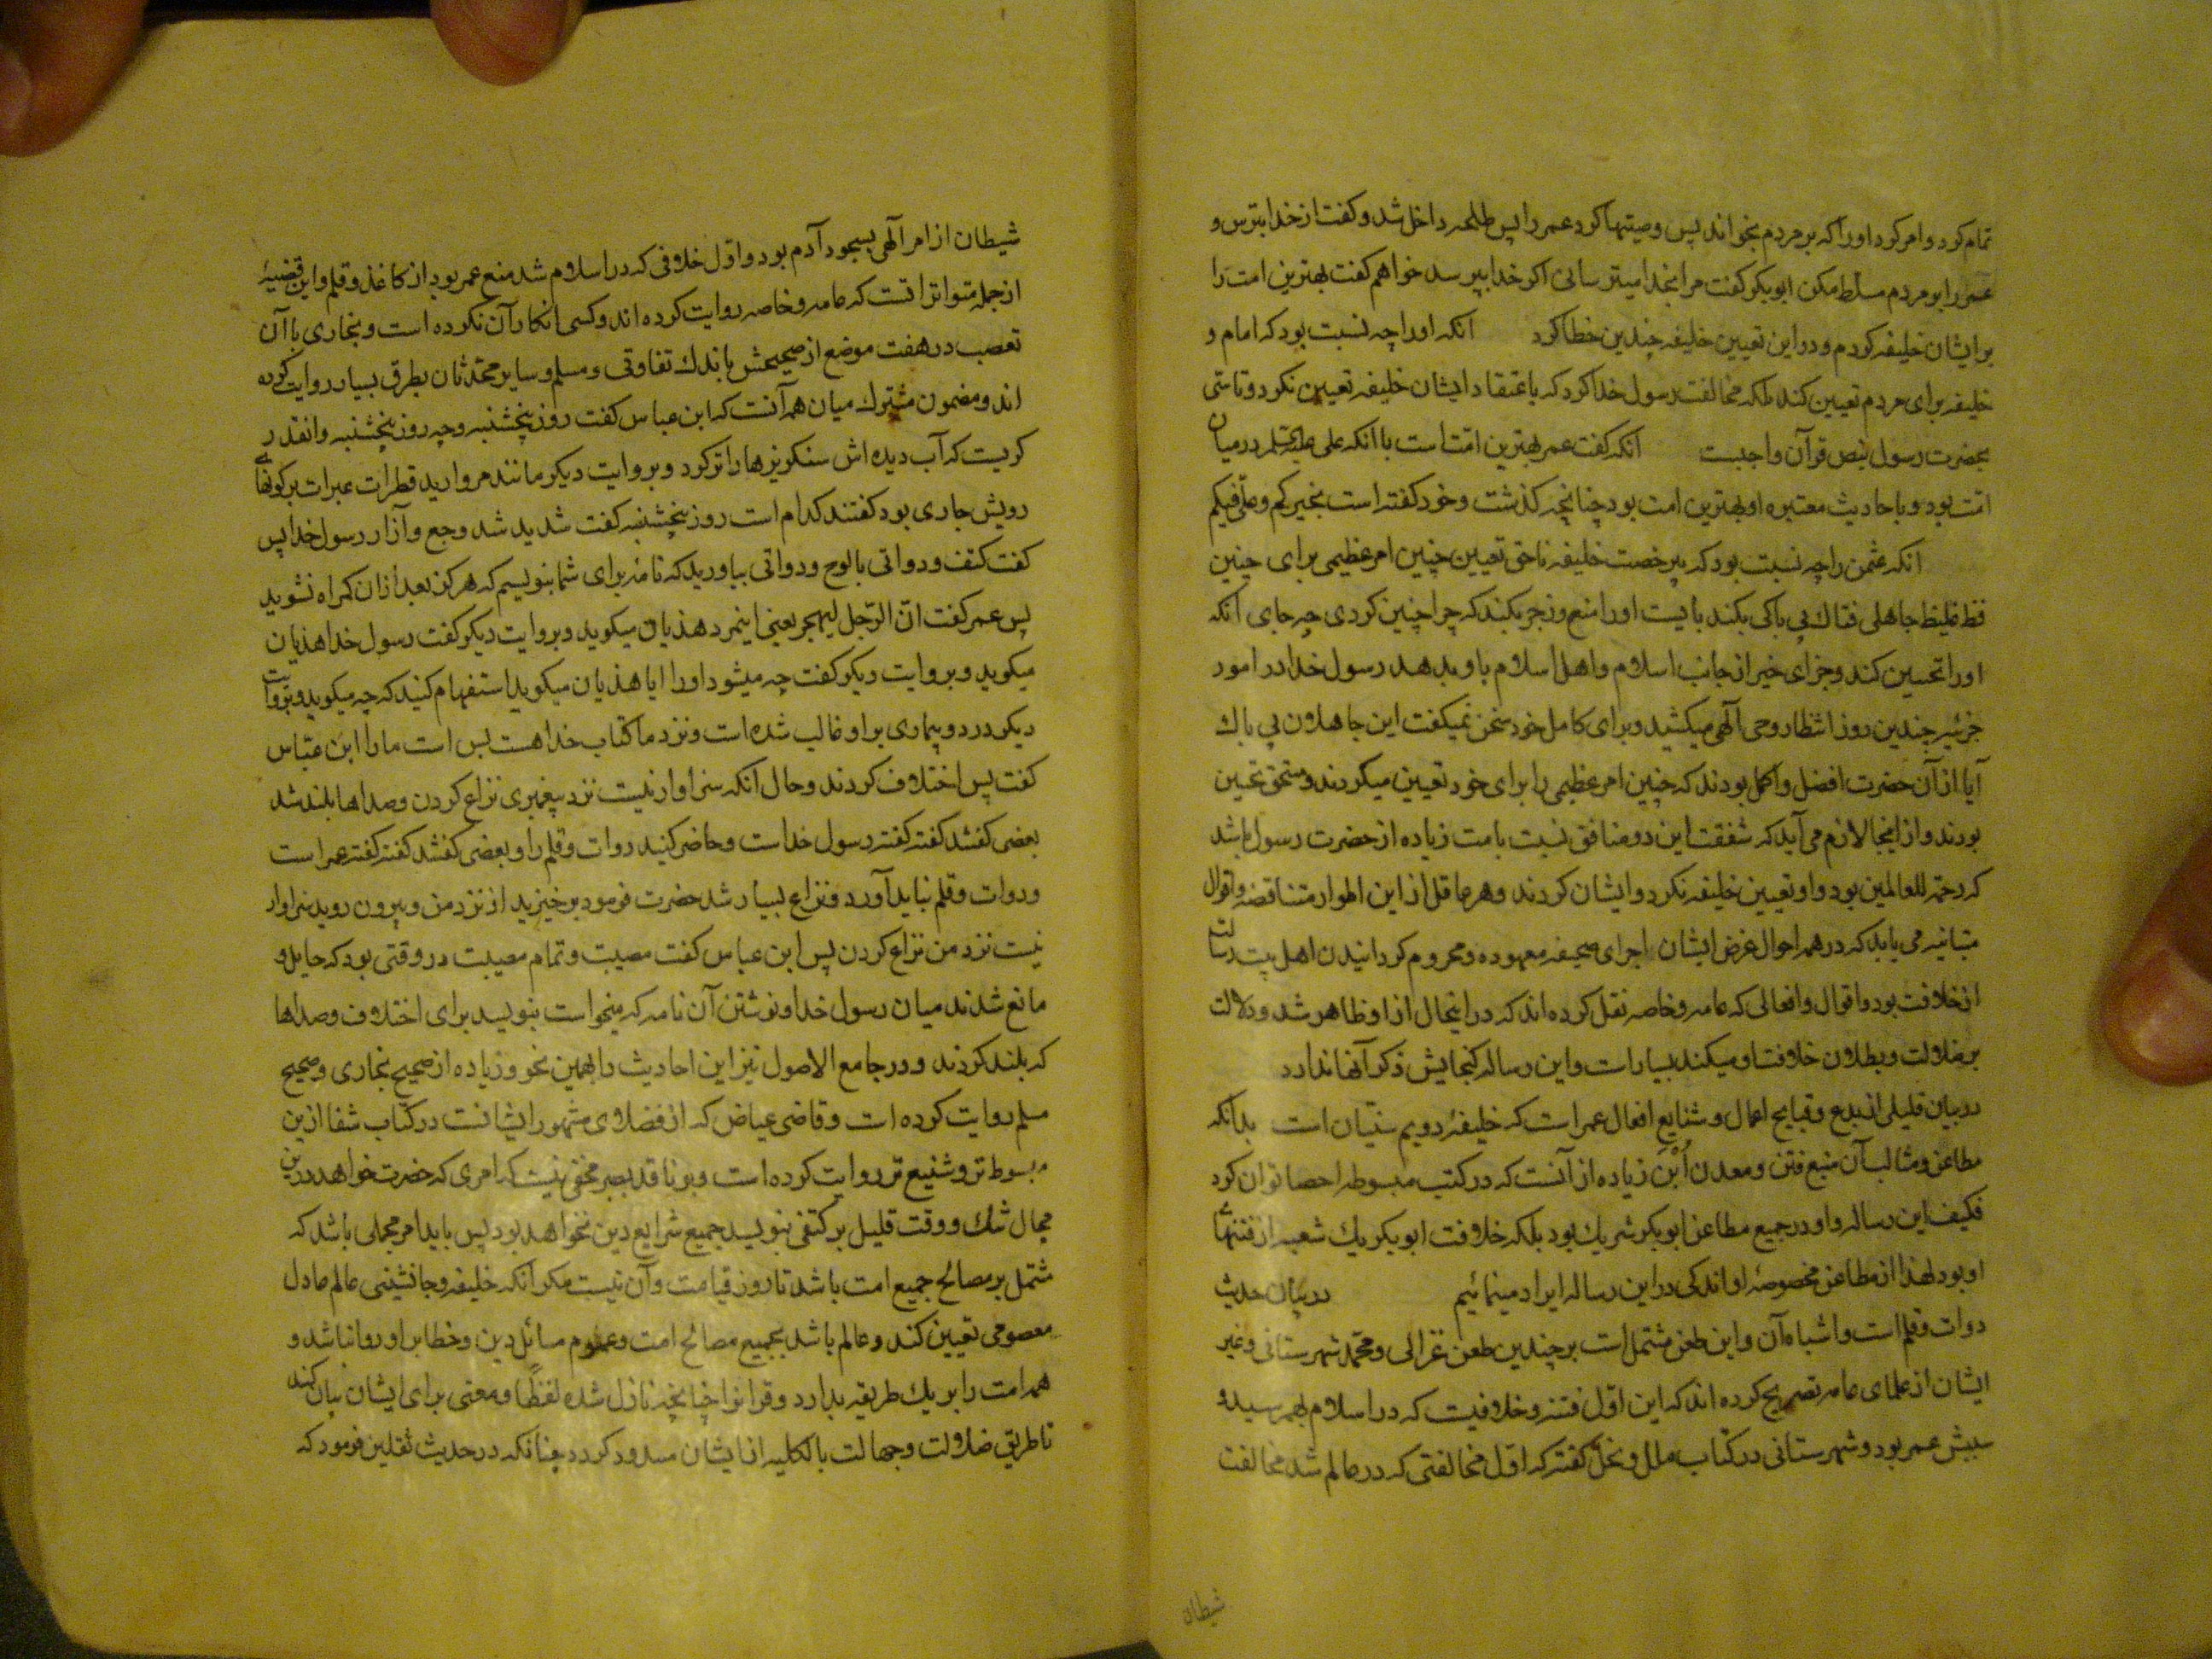 تمام کرد و امر کرد او را که بر مردم بخواند پس وصیتها کرد عمر را پس طلحه داخل شد و کفت از خدا بترس و
عمر را بر مردم مسلط مکن ابوبکر کفت مرا بخدا میترسانی اکر خدا بپرسد خواهم کفت بهترین امت را
بر ایشان خلیفه کردم و در این تعیین خلیفه چندین خطا کرد انکه او را چه نسبت بود که امام و
خلیفه برای مردم تعیین کند بلکه مخالفت رسول خدا کرد که باعتقاد ایشان خلیفه تعیین نکرد و تاسی
بحضرت رسول بنص قرآن واجبست انکه کفت عمر بهترین امّت است با انکه علی علیه السّلم در میان
امّت بود و باحادیث معتبره او بهترین امت بود چنانچه کذشت و خود کفته است بخیرکم و علّی فیکم
انکه عثمن را چه نسبت بود که بیرخصت خلیفه ناحق تعیین چنین امر عظیمی برای چنین
فظ غلیظ جاهلی فتاك بی باکی بکند بایست او را منع و زجر بکند که چرا چنین کردی چه جای انکه
او را تحسین کند و جزای خیر از جانب اسلام و اهل اسلام باو بدهد رسول خدا در امور
جزئیه چندین روز انتظار وحی آلهی میکشید و برای کامل خود سخن نمیکفت این جاهلان بی باك
آیا از آن حضرت افضل و اکمل بودند که چنین امر عظیمی را برای خود تعیین میکردند و مستحق تحسین
بودند و از اینجا لازم می آید که شفقت این دو منافق نسبت بامت زیاده از حضرت رسول باشد
که رحمة للعالمین بود و او تعیین خلیفه نکرد و ایشان کردند و هر عاقل از این اطوار متناقضه و اقوال
متباینه می یابد که در همه احوال غرض ایشان اجرای صحیفه معهوده و محروم کردانیدن اهل بیت رسالت
از خلافت بود و اقوال و افعالی که عامه و خاصه نقل کرده اند که در اینحال از او ظاهر شد و دلالت
بر ضلالت و بطلان خلافت او میکند بسیار است و این رساله کنجایش ذکر آنها ندارد
در بیان قلیلی از بدع و قبایح اعمال و شنایع افعال عمر است که خلیفۀ دویم سنّیان است بدانکه
مطاعن و مثالب آن منبع فتن و معدن اُبن زیاده از آنست که در کتب مبسوطه احصا توان کرد
فکیف این رساله و او در جمیع مطاعن ابوبکر شریك بود بلکه خلافت ابوبکر یك شعبه از فتنهای
او بود لهذا از مطاعن مخصوصۀ او اندکی در این رساله ایراد مینمائیم در بیان حدیث
دوات و قلم است و اشباه آن و این طعن مشتمل است بر چندین طعن غزالی و محمّد شهرستانی و غیر
ایشان از علمای عامه تصریح کرده اند که این اوّل فتنه و خلافیست که در اسلام بهم رسید و
سببش عمر بود و شهرستانی در کتاب ملل و نحل کفته که اوّل مخالفتی که در عالم شد مخالفت
شیطان
شیطان از امر آلهی بسجود آدم بود و اوّل خلافی که در اسلام شد منع عمر بود از کاغذ و قلم و این قضیۀ
از جمله متواتراتست که عامه و خاصه روایت کرده اند و کسی انکار آن نکرده است و بخاری با آن
تعصب در هفت موضع از صحیحش باندك تفاوتی و مسلم و سایر محّدثان بطرق بسیار روایت کرده
اند و مضمون مشترك میان همه آنست که ابن عباس کفت روز پنچشنبه و چه روز پنچشنبه و انقدر
کریست که آب دیده اش سنکریزها را تر کرد و بروایت دیکر مانند مروارید قطرات عبرات بر کونهای
رویش جاری بود کفتند کدام است روز پنچشنبه کفت شدید شد وجع و آزار رسول خدا پس
کفت کتف و دواتی یا لوح و دواتی بیاورید که نامه برای شما بنویسم که هرکز بعد از ان کمراه نشوید
پس عمر کفت انّ الرّجل لیهجر یعنی اینمرد هذیان میکوید و بروایت دیکر کفت رسول خدا هذیان
میکوید و بروایت دیکر کفت چه میشود او را ایا هذیان میکوید استفهام کنید که چه میکوید و بروایت
دیکر درد و بیماری بر او غالب شده است و نزد ما کتاب خدا هست بس است ما را ابن عبّاس
کفت پس اختلاف کردند و حال انکه سزاوار نیست نزد پیغمبری نزاع کردن و صداها بلند شد
بعضی کفتند کفته کفته رسول خداست و حاضر کنید دوات و قلم را و بعضی کفتند کفته کفته عمر است
و دوات و قلم نباید آورد و نزاع بسیار شد حضرت فرمود برخیزید از نزد من و بیرون روید سزاوار
نیست نزد من نزاع کردن پس ابن عباس کفت مصیبت و تمام مصیبت در وقتی بود که حایل و
مانع شدند میان رسول خدا و نوشتن آن نامه که میخواست بنویسد برای اختلاف و صداها
که بلند کردند و در جامع الاصول نیز این احادیث را بهمین نحو و زیاده از صحیح بخاری و صحیح
مسلم روایت کرده است و قاضی عیاض که از فضلای مشهور ایشانست در کتاب شفا ازین
مبسوط تر و شنیع تر روایت کرده است و بر ناقد بصیر مخفی نیست که امری که حضرت خواهد درین
مجال تنك و وقت قلیل بر کتفی بنویسد جمیع شرایع دین نخواهد بود پس باید امر مجملی باشد که
مشتمل بر مصالح جمیع امت باشد تا روز قیامت و آن نیست مکر انکه خلیفه و جانشینی عالم عادل
معصومی تعیین کند و عالم باشد بجمیع مصالح امت و عموم مسائل دین و خطا بر او روا نباشد و
همه امت را بر یك طریقه بدارد و قران را چنانچه نازل شده لفظًا و معنی برای ایشان بیان کند
تا طریق ضلالت و جهالت بالکلیه از ایشان مسدود کردد چنانکه در حدیث ثقلین فرمود که